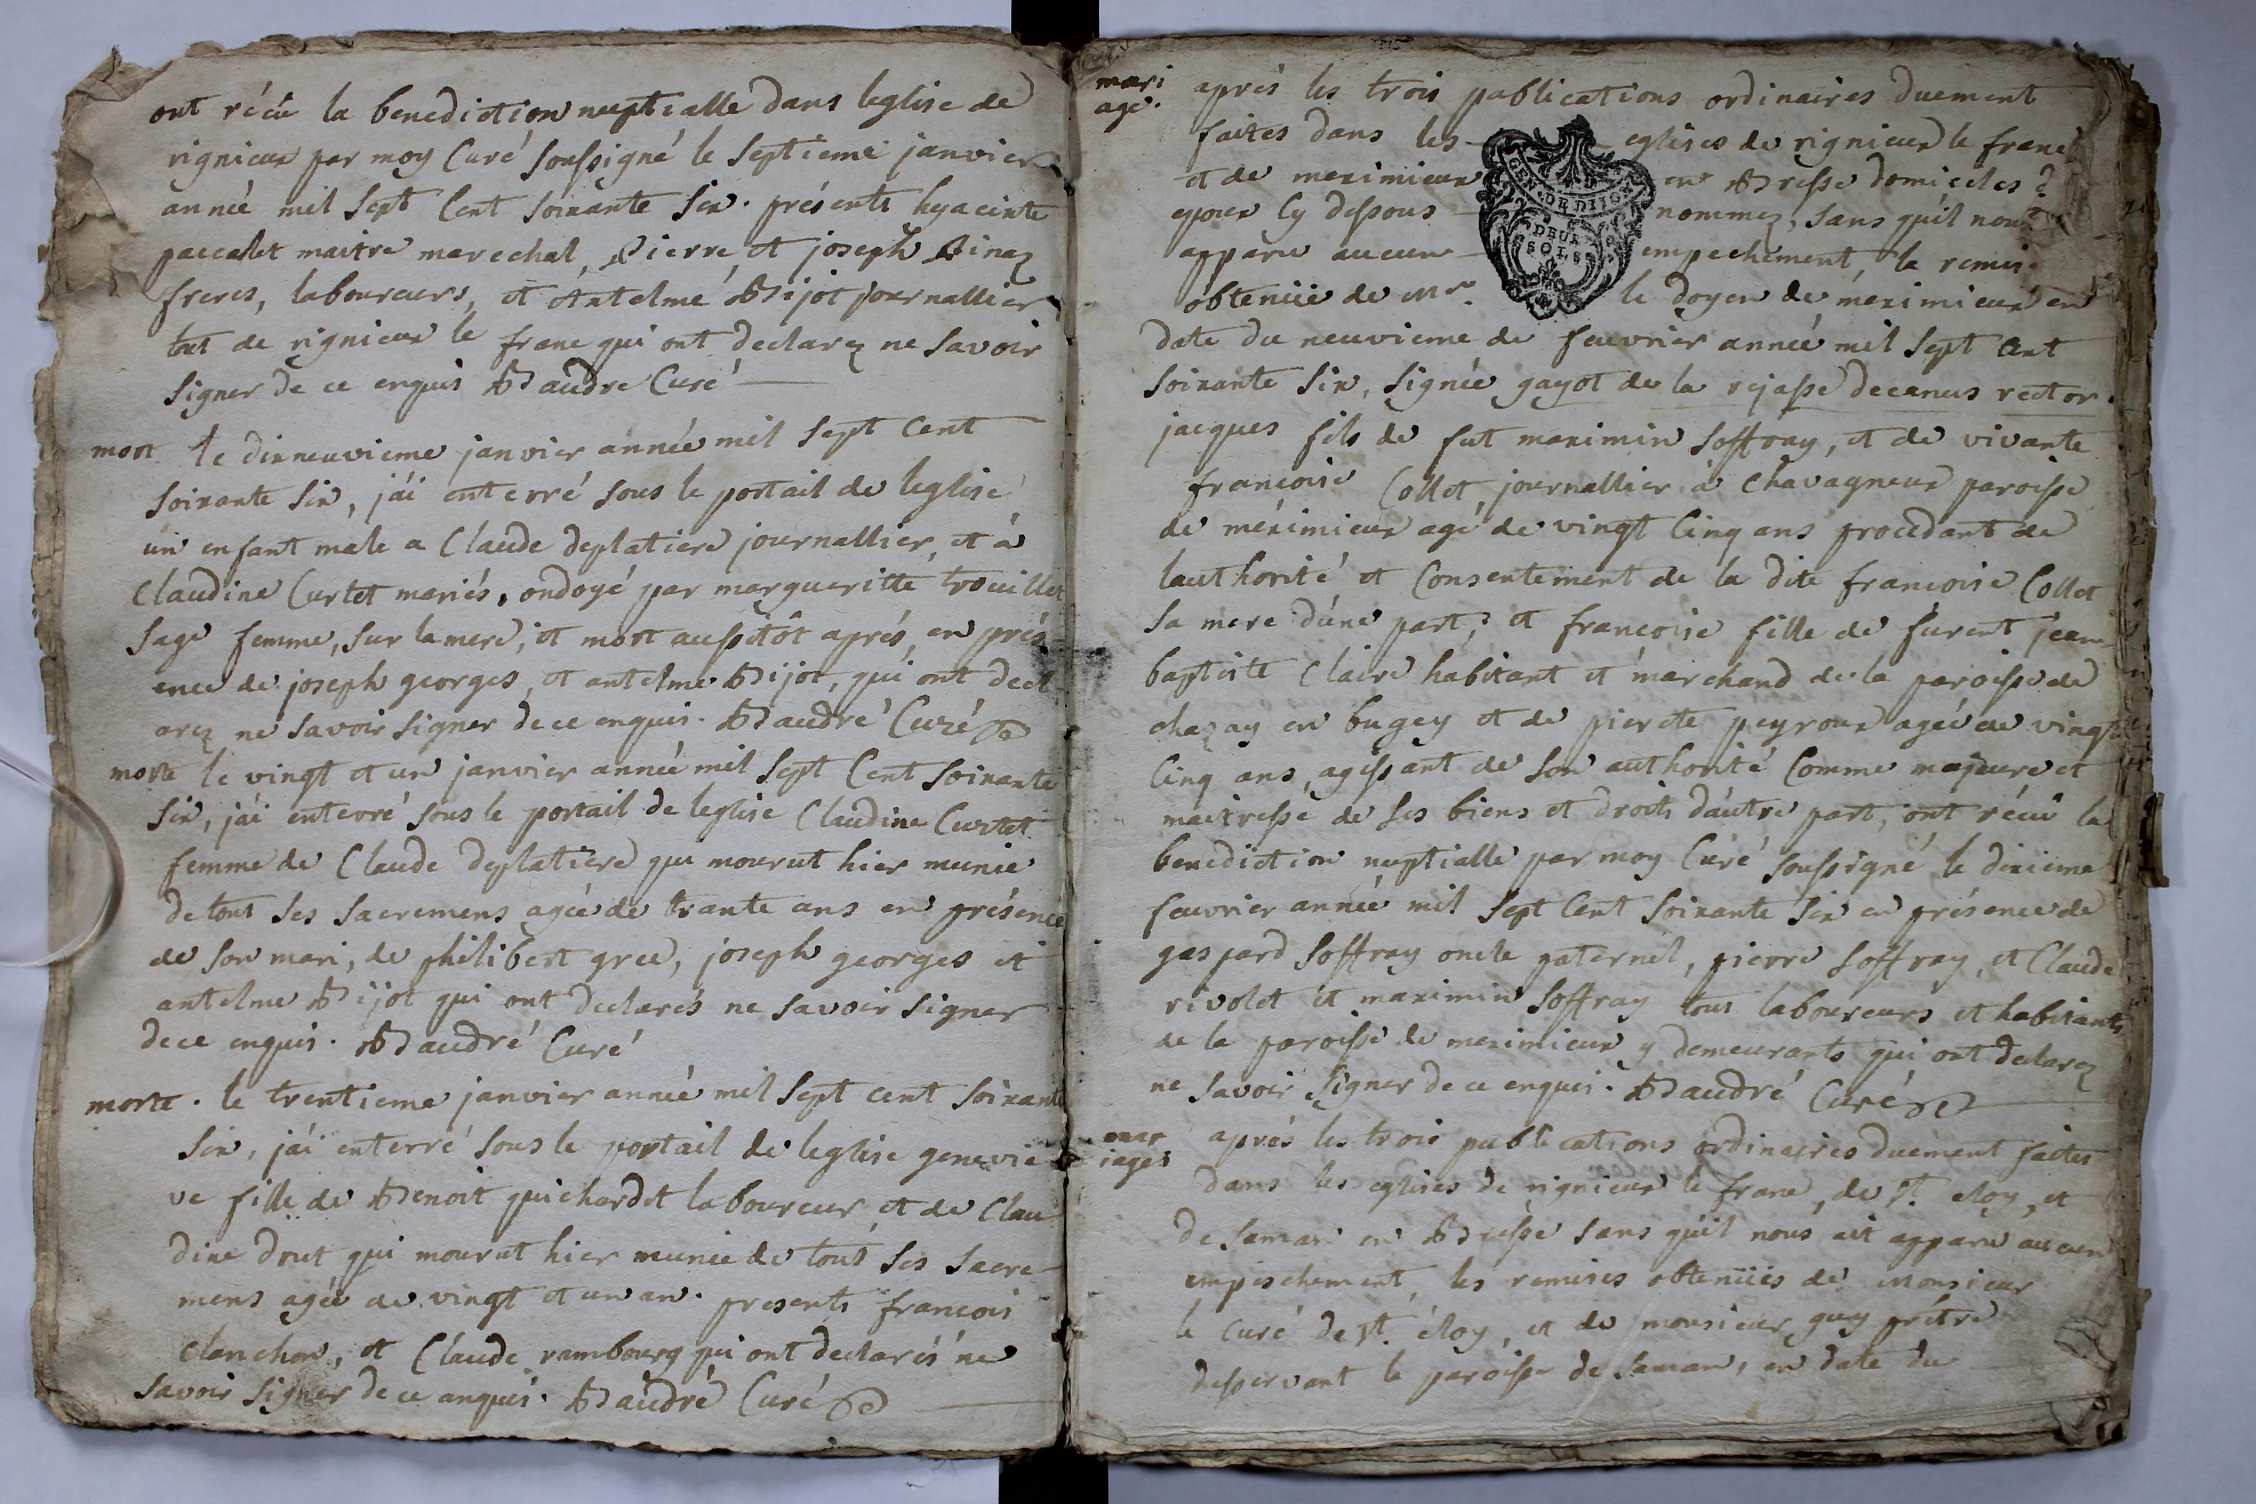 ont récû la benediction nuptialle dans leglise de
rignieux par moy Curé soussigné le septieme janvier
année mil sept Cent soixante six. présents hyacinte
paccalet maitre marechal, Pierre et joseph Ainaz
freres, laboureurs, et Antelme Bijot journallier
tout de rignieux le franc qui ont declarez ne savoir
signer de ce enquis Baudre Curé
mort le dixneuvieme janvier année mil sept Cent
soixante six, j'ai enterré sous le portail de leglise
un enfant male a Claude deplatiere journallier, et à
Claudine Curtet mariés, ondoyé par margueritte trouillet
sage femme, sur la mere, et mort aussitôt aprés, en prés
ence de joseph georges, et antelme Bijot, qui ont decl
arez ne savoir signer de ce enquis. Baudré Curé
morte le vingt et un janvier année mil sept Cent soixante
six, j'ai enterré sous le portail de leglise Claudine Curtet
femme de Claude deplatiere qui mourut hier munie
de tout ses sacremens agée de trante ans en présence
de son mari, de philibert gree, joseph georges et
antelme Bijot qui ont declarés ne savoir signer
de ce enquis. Baudré Curé
morte. le trentieme janvier année mil sept cent soixante
six, j'ai enterré sous le portail de leglise genevie
ve fille de Benoit guichardet laboureur, et de Clau
dine dout qui mourut hier munie de tout ses sacre
mens agée de vingt et un an. presents francois
clanchon, et Claude rambourg qui ont declarés ne
savoir signer de ce anquis. Baudré Curé
mari
age.
aprés les trois publications ordinaires duement
faites dans les eglises de rignieux le franc
et de meximieux en Bresse domiciles
epoux Cy dessous nommez, sans qu'il nout
apparu aucun empechement, la remise
obtenüe de Mr. le doyen de meximieux en
GEN. DE DIJON
DEUX
SOLS
date du neuvieme de feuvrier année mil sept Cent
soixante six, signée gayot de la rejasse decanus rector.
jacques fils de fut maximin soffray, et de vivante
francoise Collet, journallier à Chavagneux paroisse
de méximieux agé de vingt Cinq ans procedant de
lauthorité et Consentement de la dite francoise Collet
sa mere d'une part, et francoise fille de furent jean
baptiste Claire habitant et marchand de la paroisse de
chazay en bugey et de pierete peyroux agée de vingt
Cinq ans, agissant de son authorité Comme majeure et
maitresse de ses biens et droits d'autre part, ont récû la
benediction nuptialle par moy Curé soussigné le dixieme
feuvrier année mil sept Cent soixante six en présence de
gaspard soffray oncle paternel, pierre soffray, et Claude
rivolet et maximin soffray tous laboureurs et habitants
de la paroisse de meximieux y demeurants qui ont declarez
ne savoir signer de ce enquis. Baudré Curé
mar
iages
aprés les trois publications ordinaires duement faites
dans les eglises de rignieux le franc, de st. eloy, et
de samans en Bresse sans qu'il nous ait apparu aucun
empeschement, les remises obtenües de Monsieur
le Curé de st. éloy, et de monsieur guy prétre
desservant la paroisse de samans, en date du